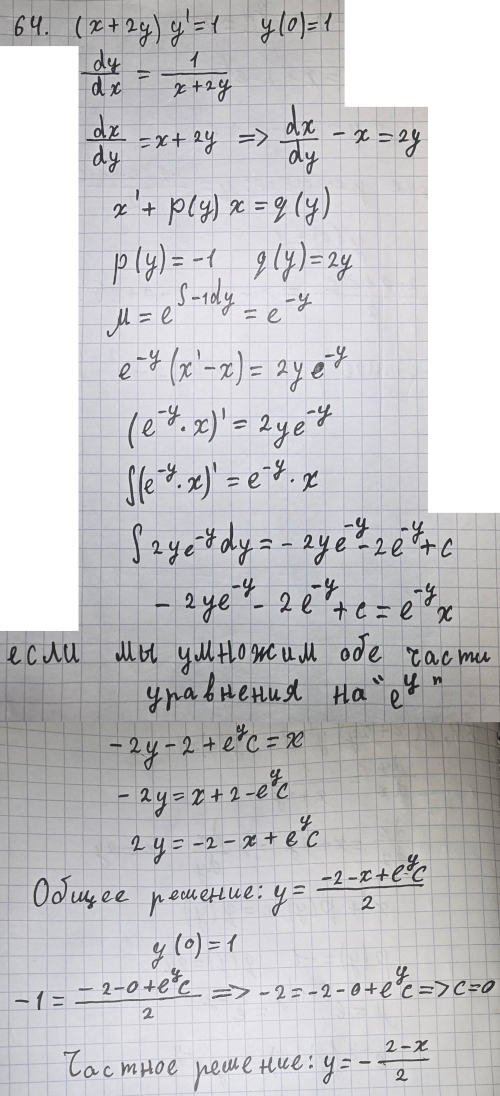 64. (x+2y) y'=1 y(0)=1
dy/dx = 1/(x+2y)
dx/dy = x+2y => dx/dy - x = 2y
x' + p(y) x = q(y)
p(y) = -1 q(y) = 2y
μ = e^∫-1dy = e^-y
e^-y (x'-x) = 2y e^-y
(e^-y · x)' = 2ye^-y
∫(e^-y · x)' = e^-y · x
∫ 2ye^-y dy = - 2ye^-y - 2e^-y + c
- 2ye^-y - 2e^-y + c = e^-y x
если мы умножим обе части
уравнения на "e^y"
-2y-2+e^y c = x
-2y = x+2-e^y c
2y = -2-x+e^y c
Общее решение: y = (-2-x+e^y c)/2
y(0)=1
-1 = (-2-0+e^y c)/2 => -2 = -2-0+e^y c => c=0
Частное решение: y = - (2-x)/2